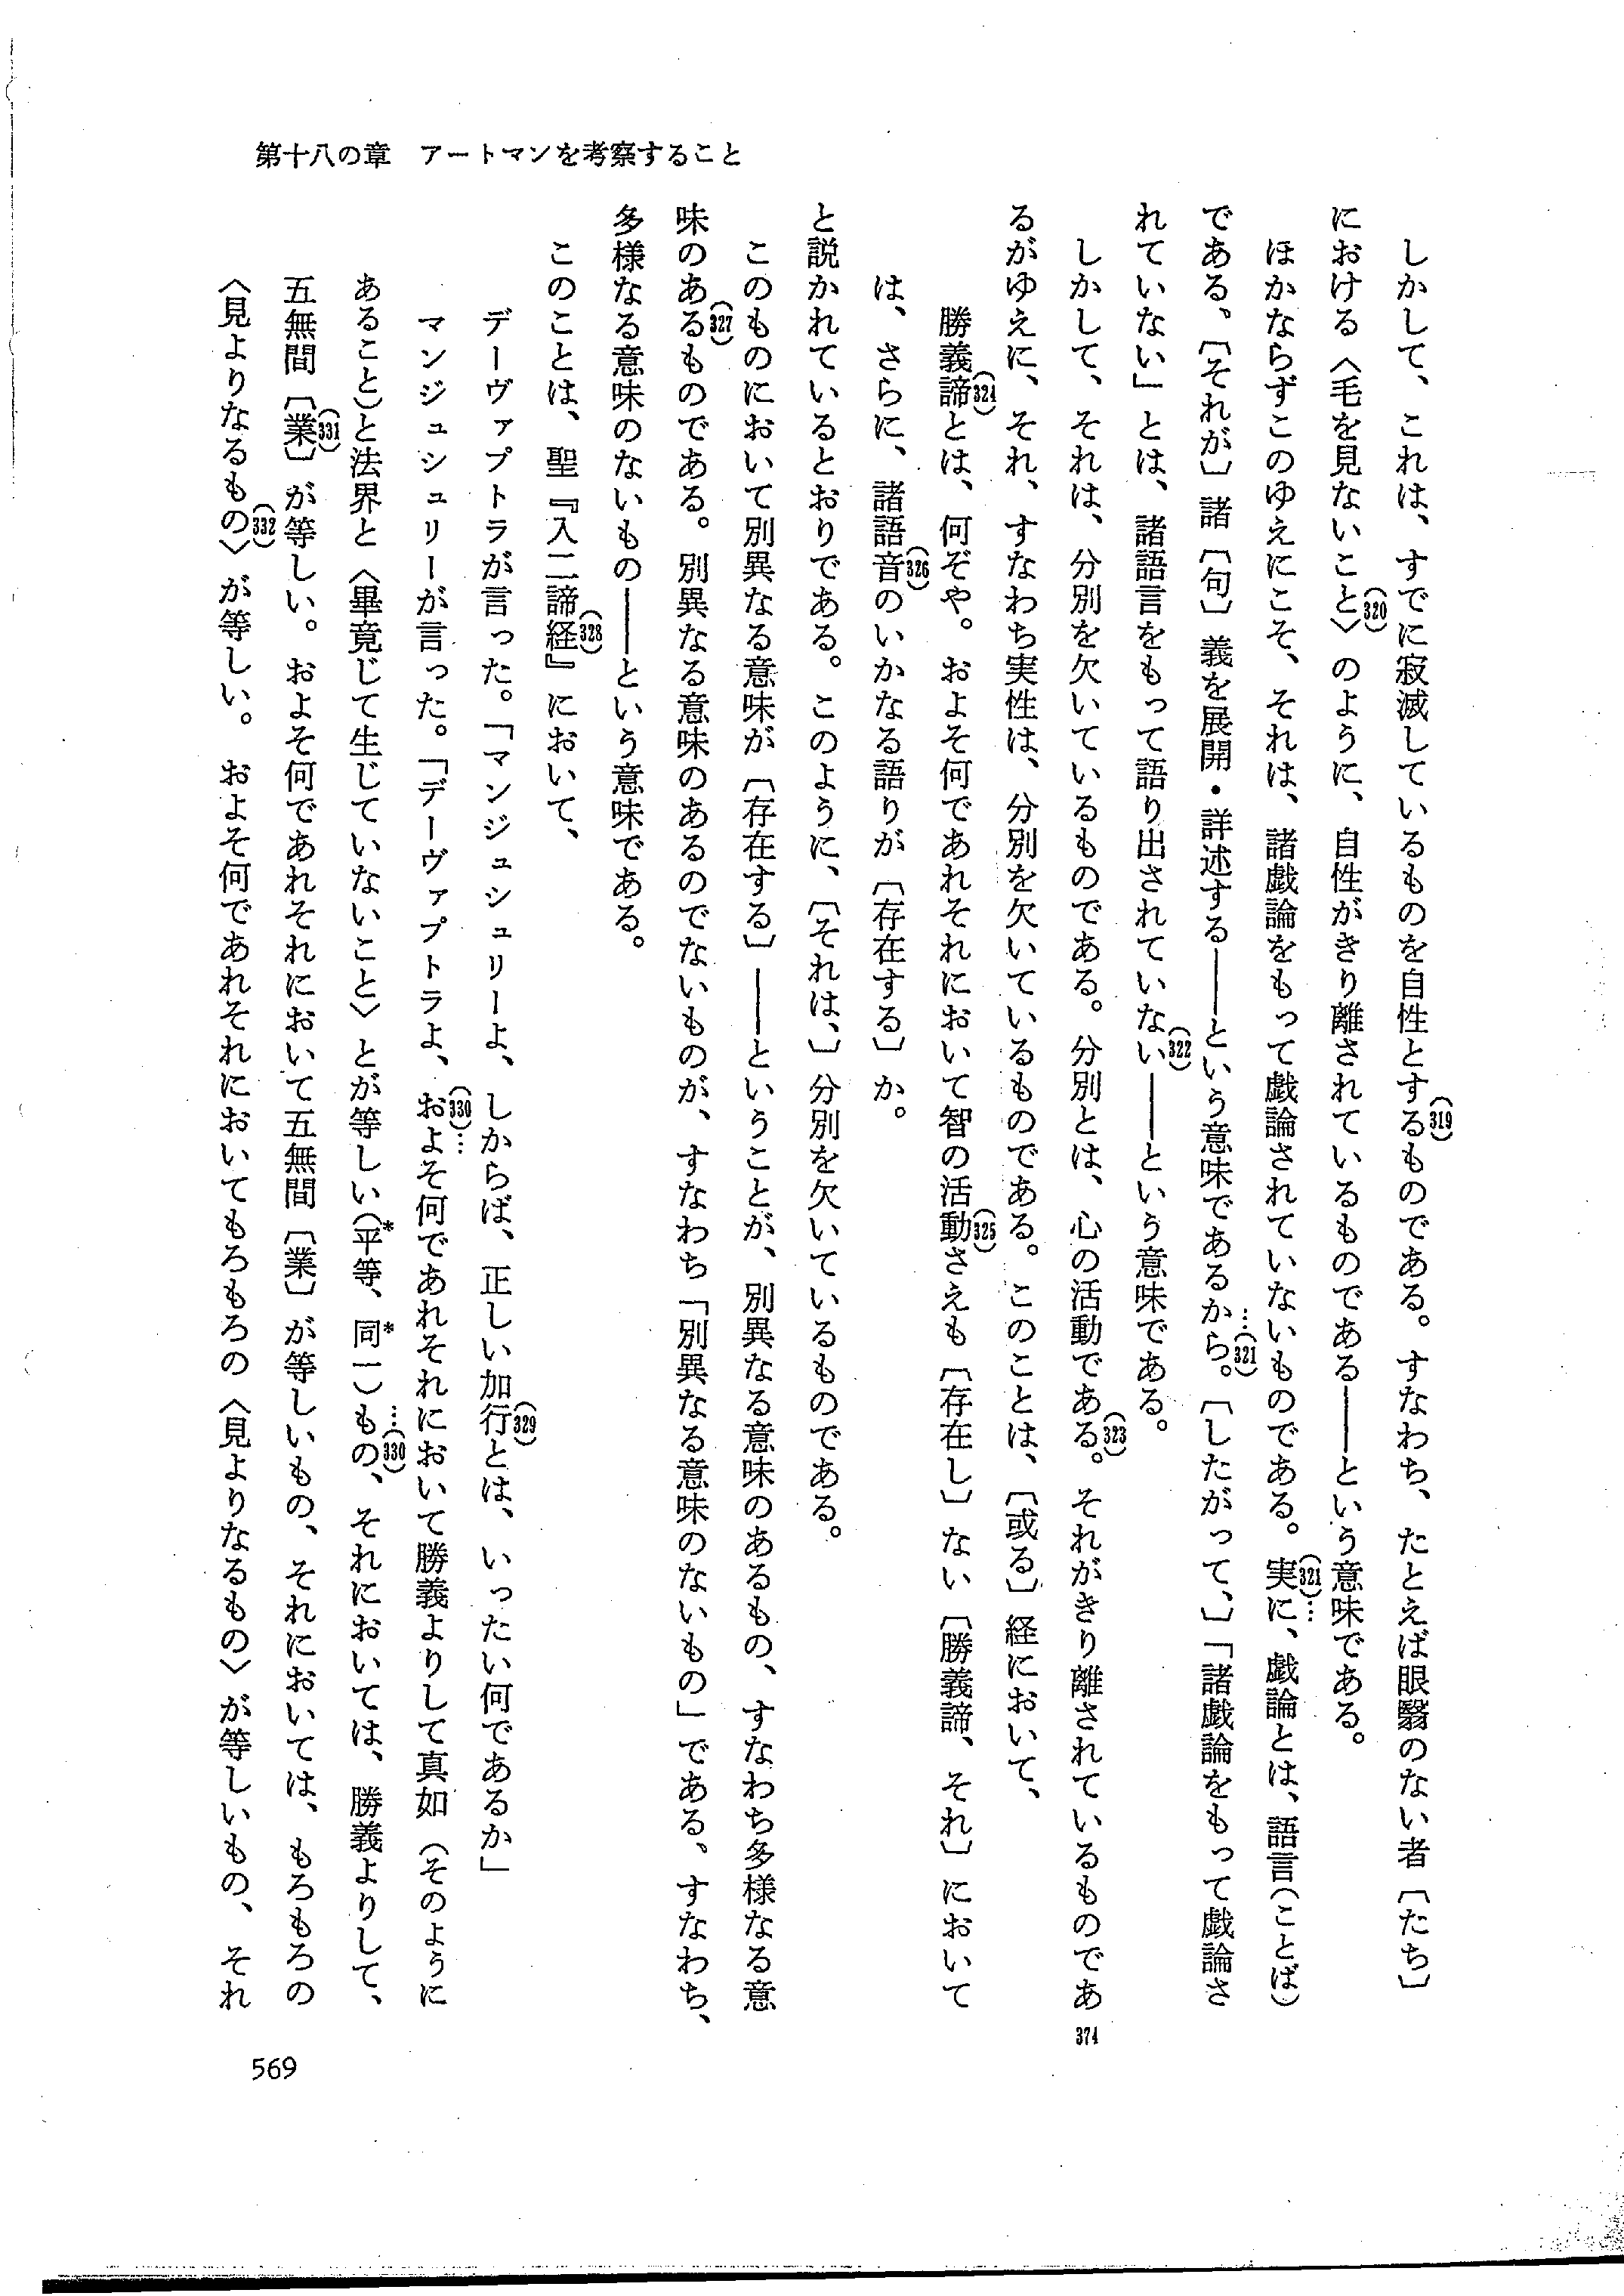 第十八の章　アートマンを考察すること
　しかして、これは、すでに寂滅しているものを自性とする(319)ものである。すなわち、たとえば眼翳のない者〔たち〕
における〈毛を見ないこと(320)〉のように、自性がきり離されているものである――という意味である。
　ほかならずこのゆえにこそ、それは、諸戯論をもって戯論されていないものである。(321)…実に、戯論とは、語言（ことば）
である、〔それが〕諸〔句〕義を展開・詳述する――という意味であるから。…(321)〔したがって、〕「諸戯論をもって戯論さ
れていない」とは、諸語言をもって語り出されていない(322)――という意味である。
　しかして、それは、分別を欠いているものである。分別とは、心の活動である(323)。それがきり離されているものであ
374
るがゆえに、それ、すなわち実性は、分別を欠いているものである。このことは、〔或る〕経において、
　　勝義諦(324)とは、何ぞや。およそ何であれそれにおいて智の活動(325)さえも〔存在し〕ない〔勝義諦、それ〕において
　は、さらに、諸語音(326)のいかなる語りが〔存在する〕か。
と説かれているとおりである。このように、〔それは、〕分別を欠いているものである。
　このものにおいて別異なる意味が〔存在する〕――ということが、別異なる意味のあるもの、すなわち多様なる意
味のある(327)ものである。別異なる意味のあるのでないものが、すなわち「別異なる意味のないもの」である。すなわち、
多様なる意味のないもの――という意味である。
　このことは、聖『入二諦経(328)』において、
　　デーヴァプトラが言った。「マンジュシュリーよ、しからば、正しい加行(329)とは、いったい何であるか」
　　マンジュシュリーが言った。「デーヴァプトラよ、(330)…およそ何であれそれにおいて勝義よりして真如（そのように
　あること）と法界と〈畢竟じて生じていないこと〉とが等しい（*平等、*同一）もの…(330)、それにおいては、勝義よりして、
　五無間〔業(331)〕が等しい。およそ何であれそれにおいて五無間〔業〕が等しいもの、それにおいては、もろもろの
　〈見よりなるもの(332)〉が等しい。およそ何であれそれにおいてもろもろの〈見よりなるもの〉が等しいもの、それ
569